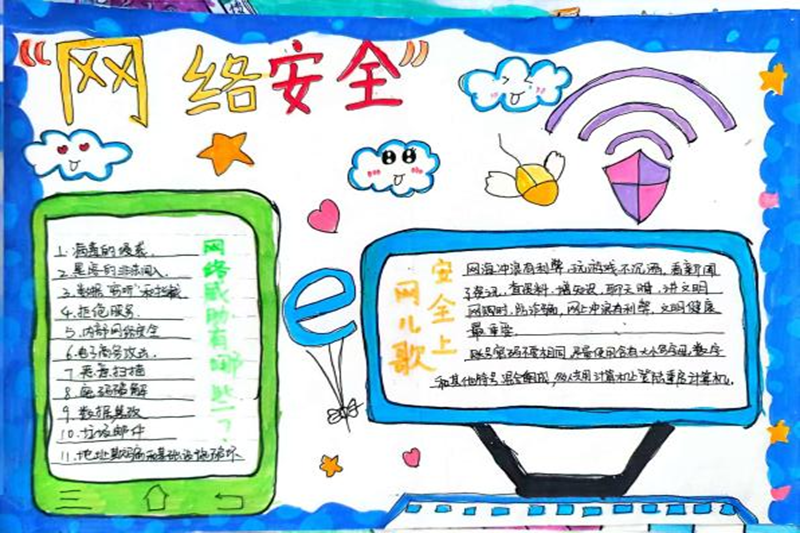 “网络安全”
网络威胁有哪些?
1. 病毒的侵袭.
2. 黑客的非法闯入.
3. 数据"窃听"和拦截
4. 拒绝服务.
5. 内部网络安全
6. 电子商务攻击.
7. 恶意扫描
8. 密码破解
9. 数据篡改
10. 垃圾邮件
11. 地址欺骗和基础设施破坏
安全上
网儿歌
网海冲浪有利弊.玩游戏不沉迷.看新闻
了资讯.查资料.增知识.聊天时.讲文明
网购时.防诈骗.网上冲浪有利弊.文明健康
最重要.
账号密码不要相同.尽量使用含有大小写字母.数字
和其他符号混合组成.多人共用计算机上登陆重启计算机.
e